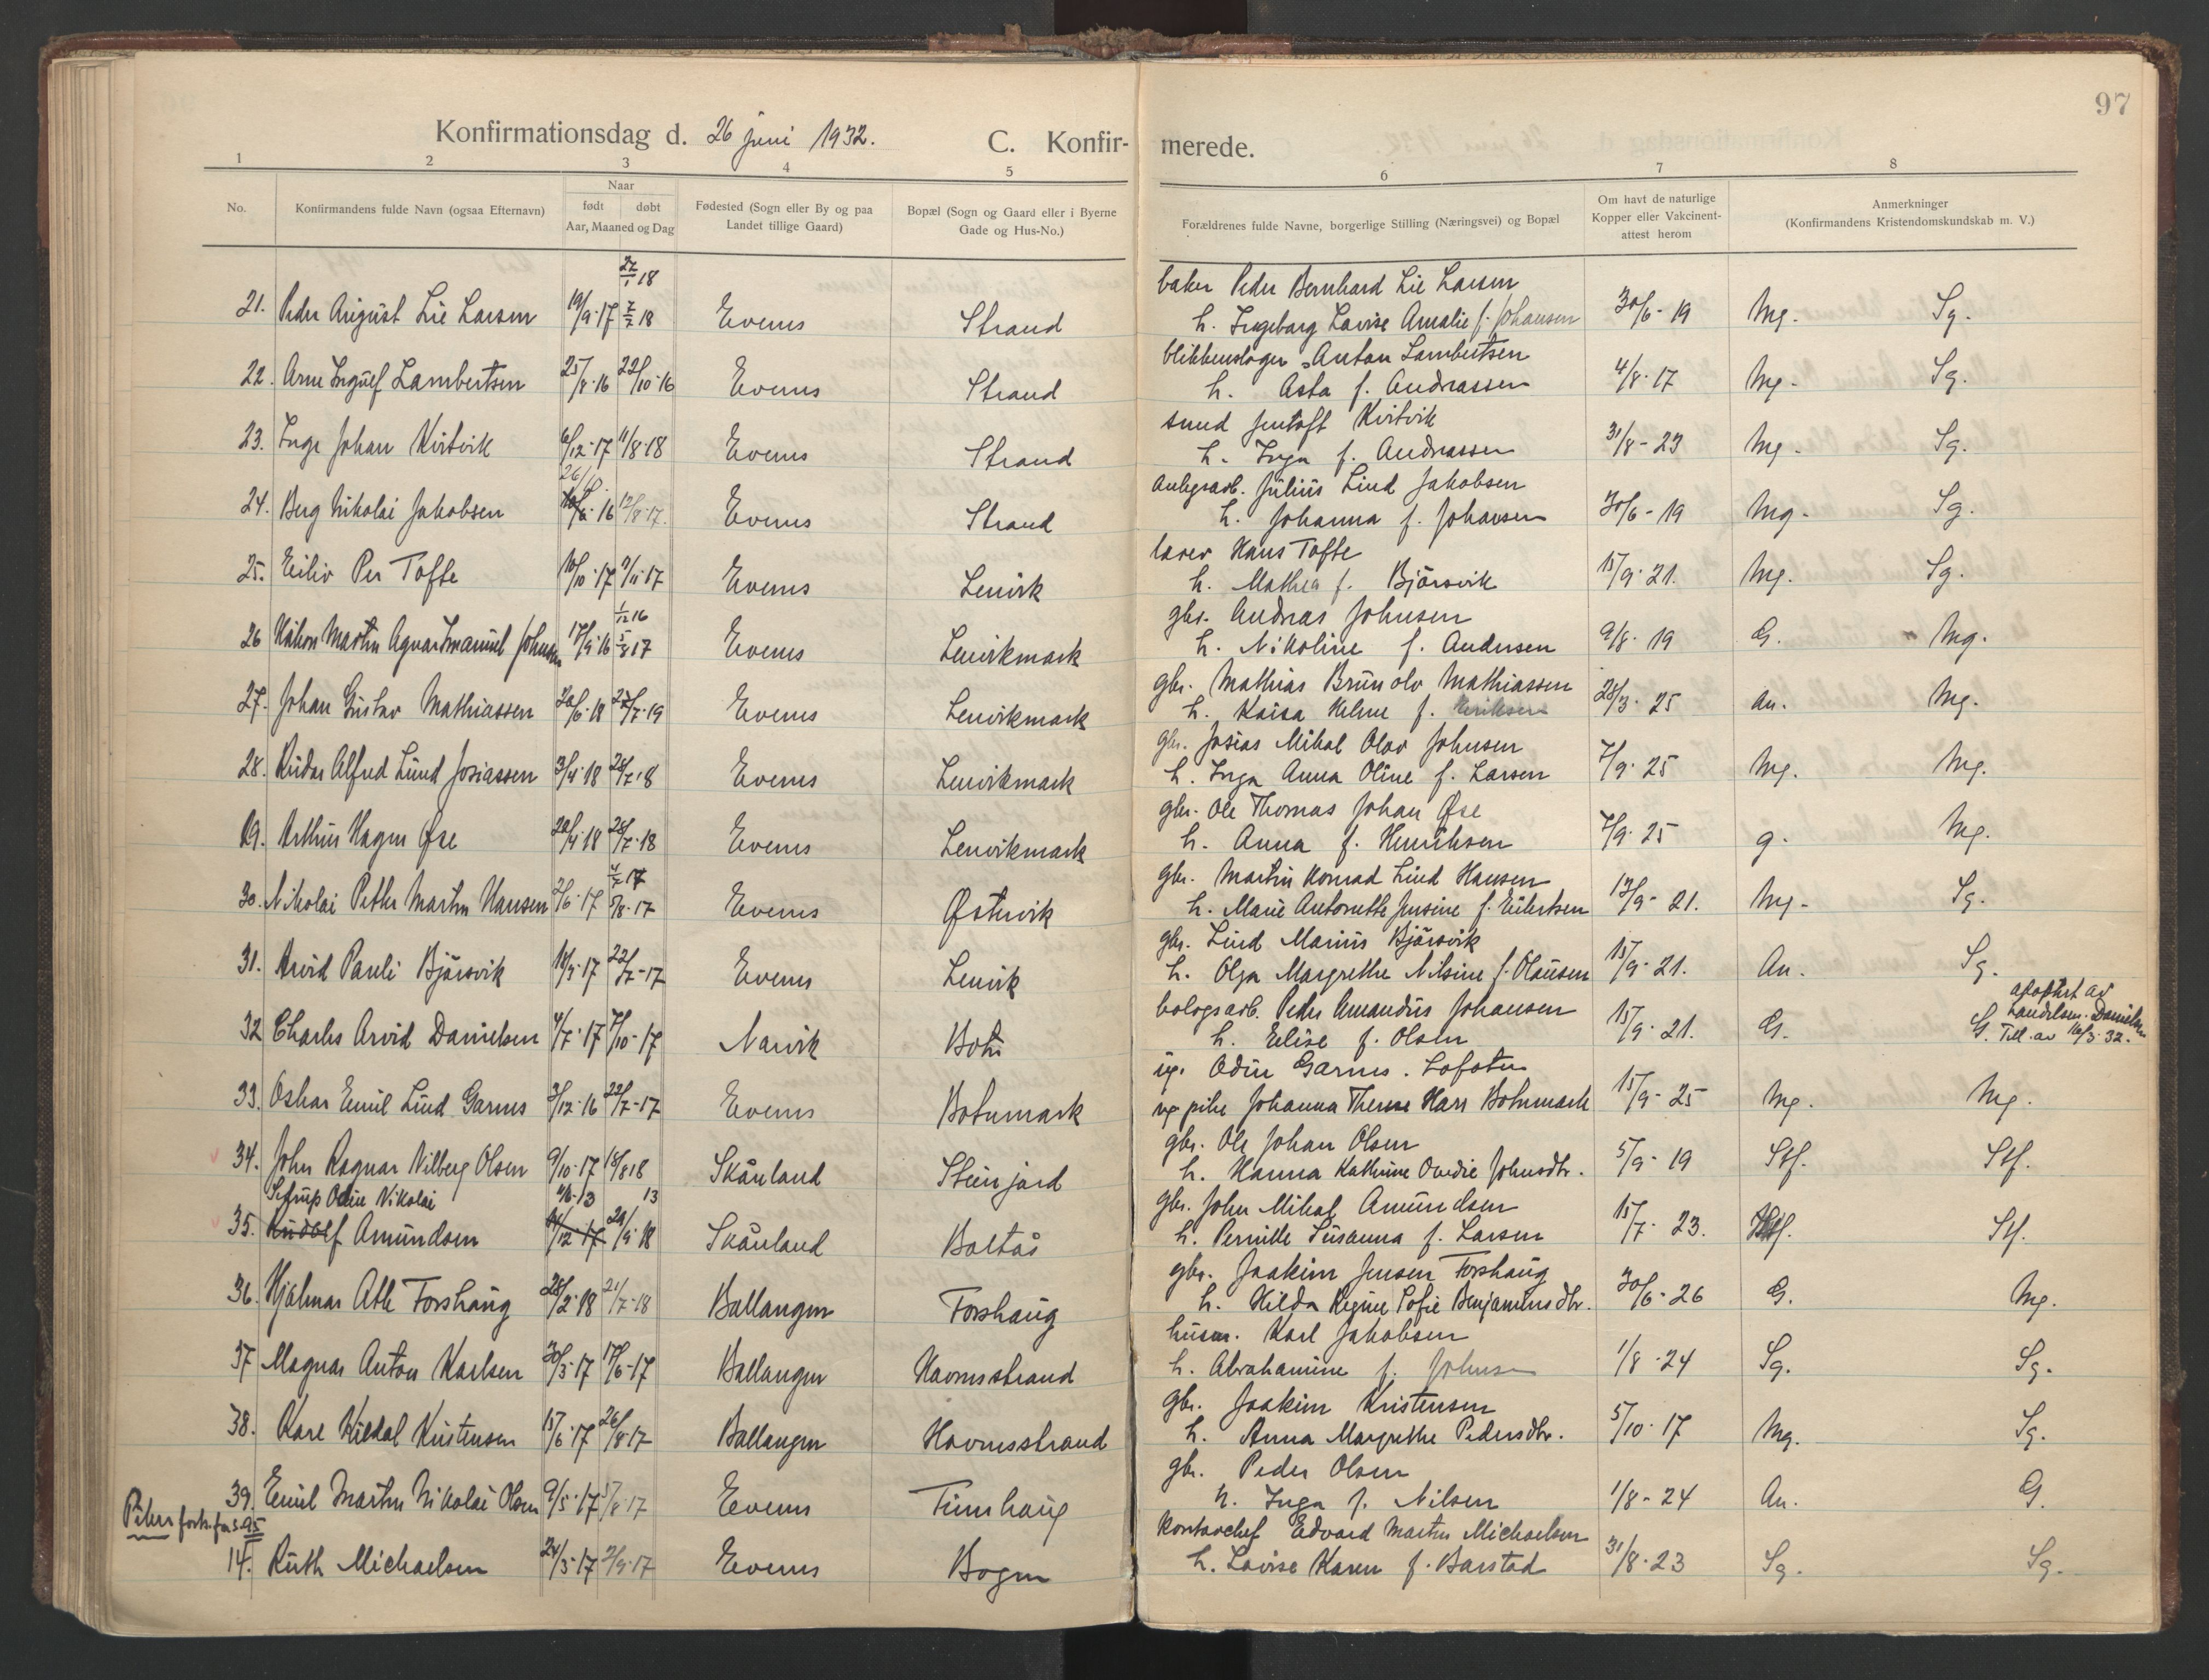 97
Konfirmationsdag d. 26 juni 1932. C. Konfir- merede.
1 2 3 4 5 6 7 8
No.
Konfirmandens fulde Navn (ogsaa Efternavn)
Naar
født døbt
Aar, Maaned og Dag
Fødested (Sogn eller By og paa
Landet tillige Gaard)
Bopæl (Sogn og Gaard eller i Byerne
Gade og Hus-No.)
Forældrenes fulde Navne, borgerlige Stilling (Næringsvei) og Bopæl
Om havt de naturlige
Kopper eller Vakcinent-
attest herom
Anmerkninger
(Konfirmandens Kristendomskundskab m. V.)
27/1 18
baker Peder Bernhard Lie Larsen
21. Peder August Lie Larsen 19/9-17 2/2 18 Evenes Strand
h. Ingeborg Lovise Amalie f. Johansen 30/6-19 Mg. Sg.
blikkenslager Anton Lambertsen
22. Arne Ingulf Lambertsen 25/8-16 22/10-16 Evenes Strand
h. Asta f. Andreassen 4/8-17 Mg. Sg.
smed Jentoft Kvitvik
23. Inge Johan Kvitvik 6/12-17 11/8-18 Evenes Strand
h. Inga f. Andreassen 31/8-23 Mg. Sg.
26/10.
anlegsarb. Julius Lind Jakobsen
24. Berg Nikolai Jakobsen 16 12/8-17. Evenes Strand
h. Johanna f. Johansen 30/6-19 Mg. Sg.
lærer Hans Tofte
25. Eiliv Per Tofte 10/10-17 11/11-17 Evenes Lenvik
h. Mathea f. Bjørsvik 15/9-21. Mg. Sg.
1/12 16
gbr. Andreas Johnsen
26 Håkon Martin Agnar Emanuel Johnsen 17/9-16 5/8 17 Evenes Lenvikmark
h. Nikoline f. Andersen 9/8-19 G. Mg.
gbr. Mathias Brun olv Mathiassen
27. Johan Gustav Mathiassen 20/6-18 27/7-19 Evenes Lenvikmark
h. Kaisa Helene f. Henriksen 28/3-25 An. Mg.
gbr. Josias Mikal Olav Johnsen
28. Reidar Alfred Lund Josiassen 3/4-18 28/7-18 Evenes Lenvikmark
h. Inga Anna Oline f. Larsen 7/9-25 Mg. Mg.
gbr. Ole Thomas Johan Øse
29. Arthur Hagen Øse 20/4-18 28/7-18 Evenes Lenvikmark
h. Anna f. Henriksen 7/9-25 g. Mg.
17
gbr. Martin Konrad Lind Hansen
30. Nikolai Petter Martin Hansen 2/6-17 5/8-17 Evenes Østervik
h. Marie Antonette Jensine f. Eilertsen 13/9-21. Mg. Sg.
gbr. Lind Marius Bjørsvik
31. Arvid Pauli Bjørsvik 18/5-17 22/7-17 Evenes Lenvik
h. Olga Margrethe Nilsine f. Olausen 15/9-21. An. Sg.
bologsarb. Peder Amandus Johansen
32 Charles Arvid Danielsen 4/7-17 7/10-17 Narvik Botn
h. Elise f. Olsen 15/9-21. G. G.
adoptert av
Danielsen
Till. av 16/3-32.
ug. Odin Garnes. Lofoten
33. Oskar Emil Lind Garnes 3/12-16 22/7-17 Evenes Botnmark
ug pike Johanna Therese Hars Botnmark 15/9-25 Mg. Mg.
gbr. Ole Johan Olsen
34. John Ragnar Vilberg Olsen 9/10-17 18/8 18 Skånland Steinjord
h. Hanna Kathrine Ovedie Johnsdtr. 5/9-19 Stf. Stf.
Sefrup Odin Nikolai 4/6-13 13
gbr. John Mikal Amundsen
35. Rudolf Amundsen 24/12-17 29/9-18 Skånland Boltås
h. Pernille Susanna f. Larsen 15/7-23. Stf. Stf.
gbr. Joakim Jensen Forshaug
36. Hjalmar Atle Forshaug 28/2-18 21/7-18 Ballangen Forshaug
h. Hilda Regine Sofie Benjaminsdtr. 30/6-26 G. Mg.
husm. Karl Jakobsen
37 Magnar Anton Karlsen 30/3-17 17/6-17 Ballangen Havnesstrand
h. Abrahamine f. Johnsen 1/8-24 Sg. Sg.
gbr. Joakim Kristensen
38. Kare Kildal Kristensen 15/6-17 26/8-17 Ballangen Havnesstrand
h. Anna Margrethe Pedersdtr. 5/10-17 Mg. Sg.
gbr. Peder Olsen
39. Emil Martin Nikolai Olsen 9/5-17 5/8-17 Evenes Tunnhaug
h. Inga f. Nilsen 1/8-24 An. G.
Piker forts. fra s. 95
kontorchef Edvard Martin Michaelsen
14. Ruth Michaelsen 24/3-17 2/9-17 Evenes Bogen
h. Lovise Karen f. Barstad 31/8-23 Sg. Sg.